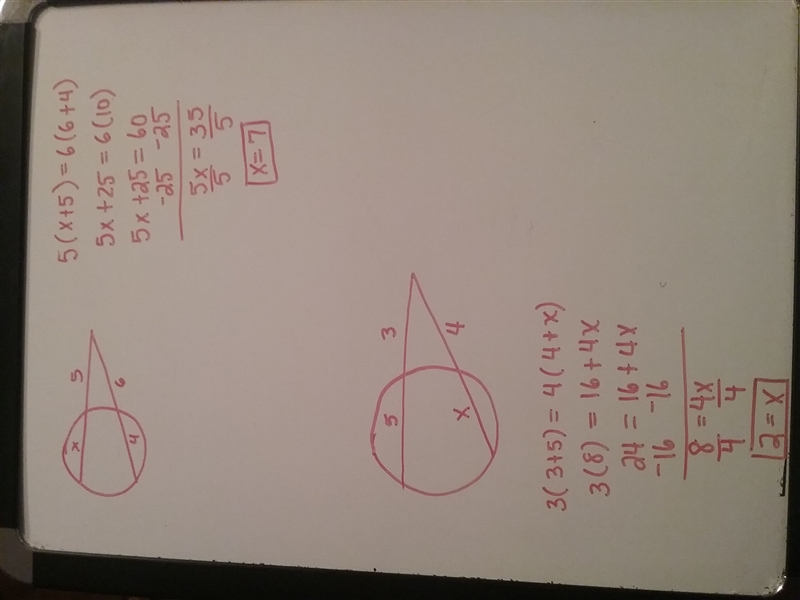 x 5
4 6
5(x+5)=6(6+4)
5x+25=6(10)
5x+25=60
-25 -25
5x = 35
5 5
x=7
5 3
x 4
3(3+5) = 4(4+x)
3(8) = 16+4x
24 = 16+4x
-16 -16
8 = 4x
4 4
2=x